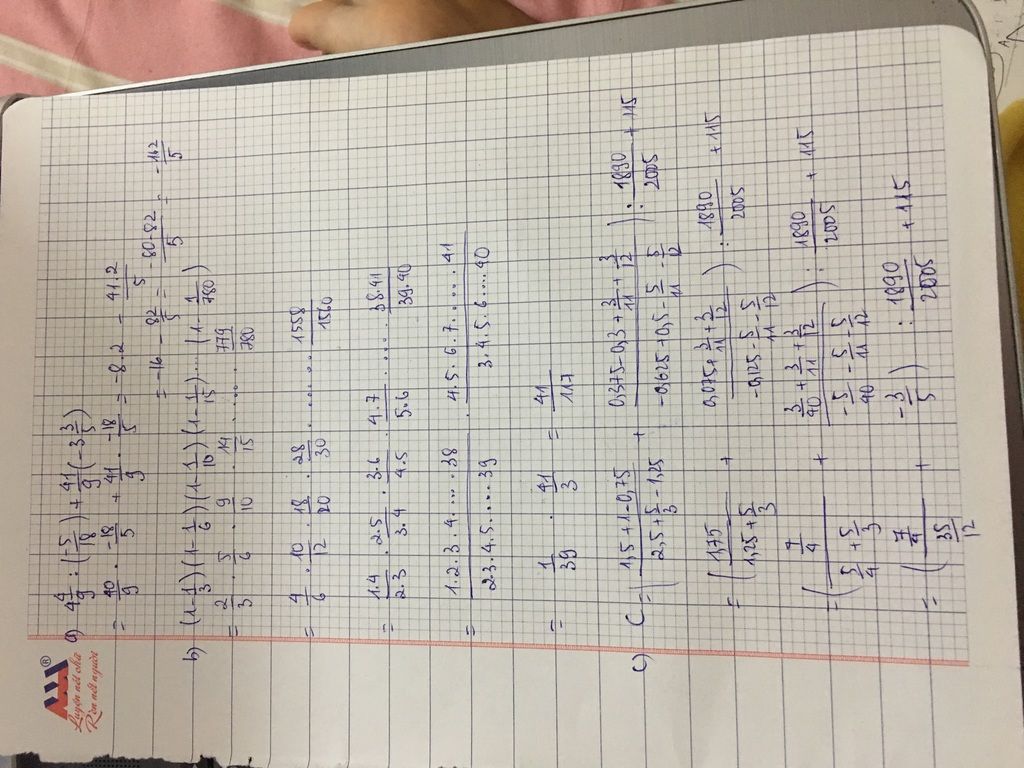 Luyện nét chữ
Rèn nết người
a) 4 4/9 : (-5/18) + 41/9 (-3 3/5)
= 40/9 . -18/5 + 41/9 . -18/5 = -8.2 - 41.2/5
= -16 - 82/5 = -80-82/5 = -162/5
b) (1-1/3)(1-1/6)(1-1/10)(1-1/15)....(1-1/780)
= 2/3 . 5/6 . 9/10 . 14/15 ..... 779/780
= 4/6 . 10/12 . 18/20 . 28/30 ....... 1558/1560
= 1.4/2.3 . 2.5/3.4 . 3.6/4.5 . 4.7/5.6 ..... 38.41/39.40
= 1.2.3.4.....38/2.3.4.5.....39 . 4.5.6.7.....41/3.4.5.6....40
= 1/39 . 41/3 = 41/117
c) C = (1,5+1-0,75/2,5+5/3-1,25 + 0,375-0,3+3/11+3/12/-0,625+0,5-5/11-5/12) : 1890/2005 + 115
= (1,75/1,25+5/3 + 0,075+3/11+3/12/-0,125-5/11-5/12) : 1890/2005 + 115
= (7/4/5/4+5/3 + 3/40+3/11+3/12/-5/40-5/11-5/12) : 1890/2005 + 115
= (7/4/35/12 + -3/5) : 1890/2005 + 115